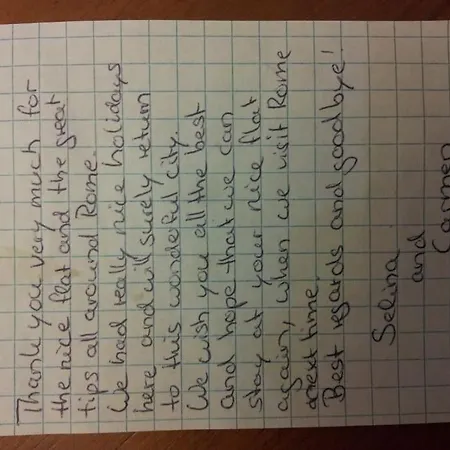 Thank you very much for
the nice flat and the great
tips all around Rome.
We had really nice holidays
here and will surely return
to this wonderful city.
We wish you all the best
and hope that we can
stay at your nice flat
again, when we visit Rome
next time.
Best regards and goodbye!
Selina
and
Carmen